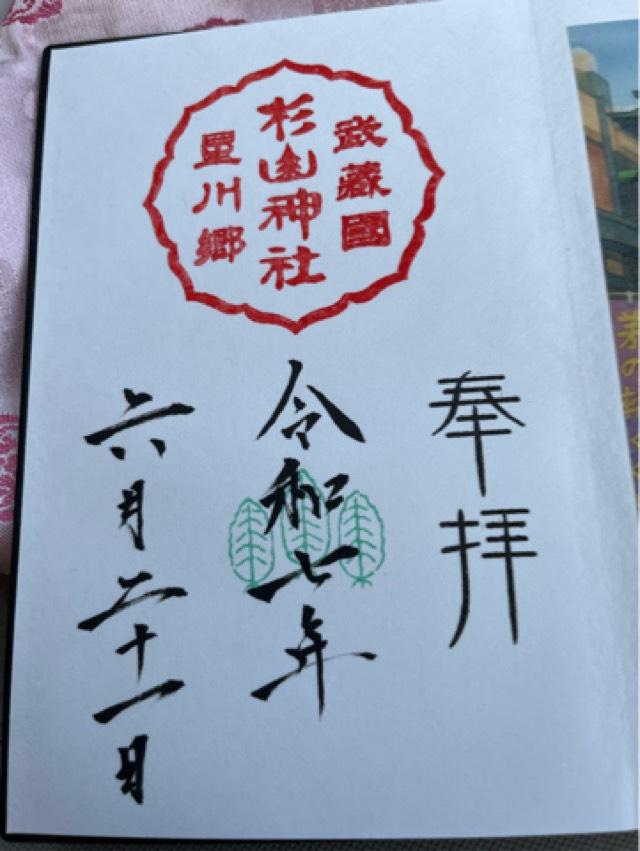 武蔵國
杉山神社
星川郷
奉拝
令和七年
六月二十一日